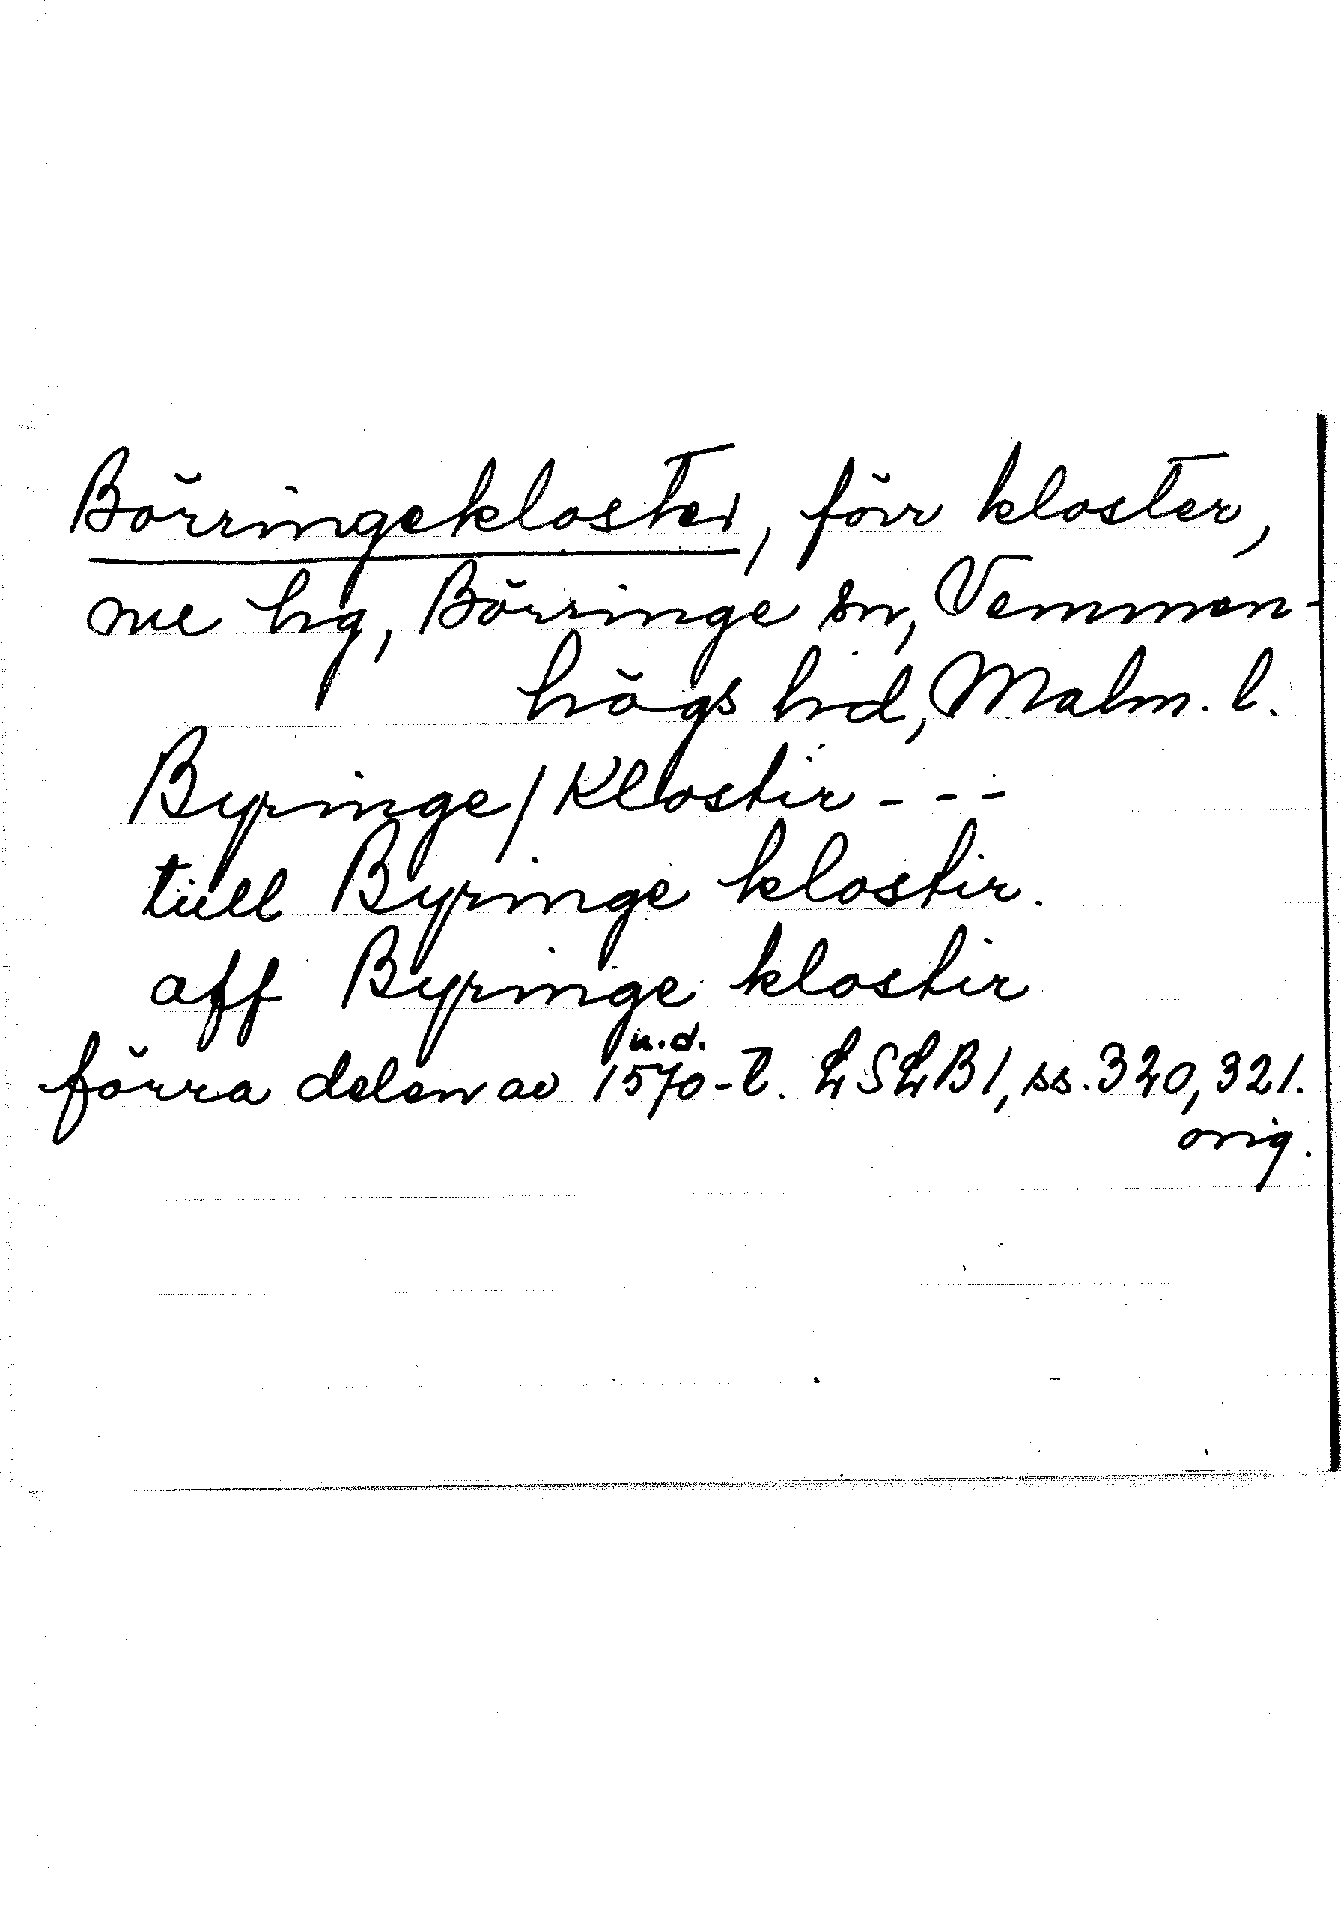 Börringekloster, förr kloster,
nu hg, Börringe sn, Vemmen-
högs hd, Malm. l.
Byringe/Klostir - - -
tiill Byringe klostir.
aff Byringe klostir
u.d.
förra delen av 1570-t. LSLB1, ss. 320, 321.
orig.